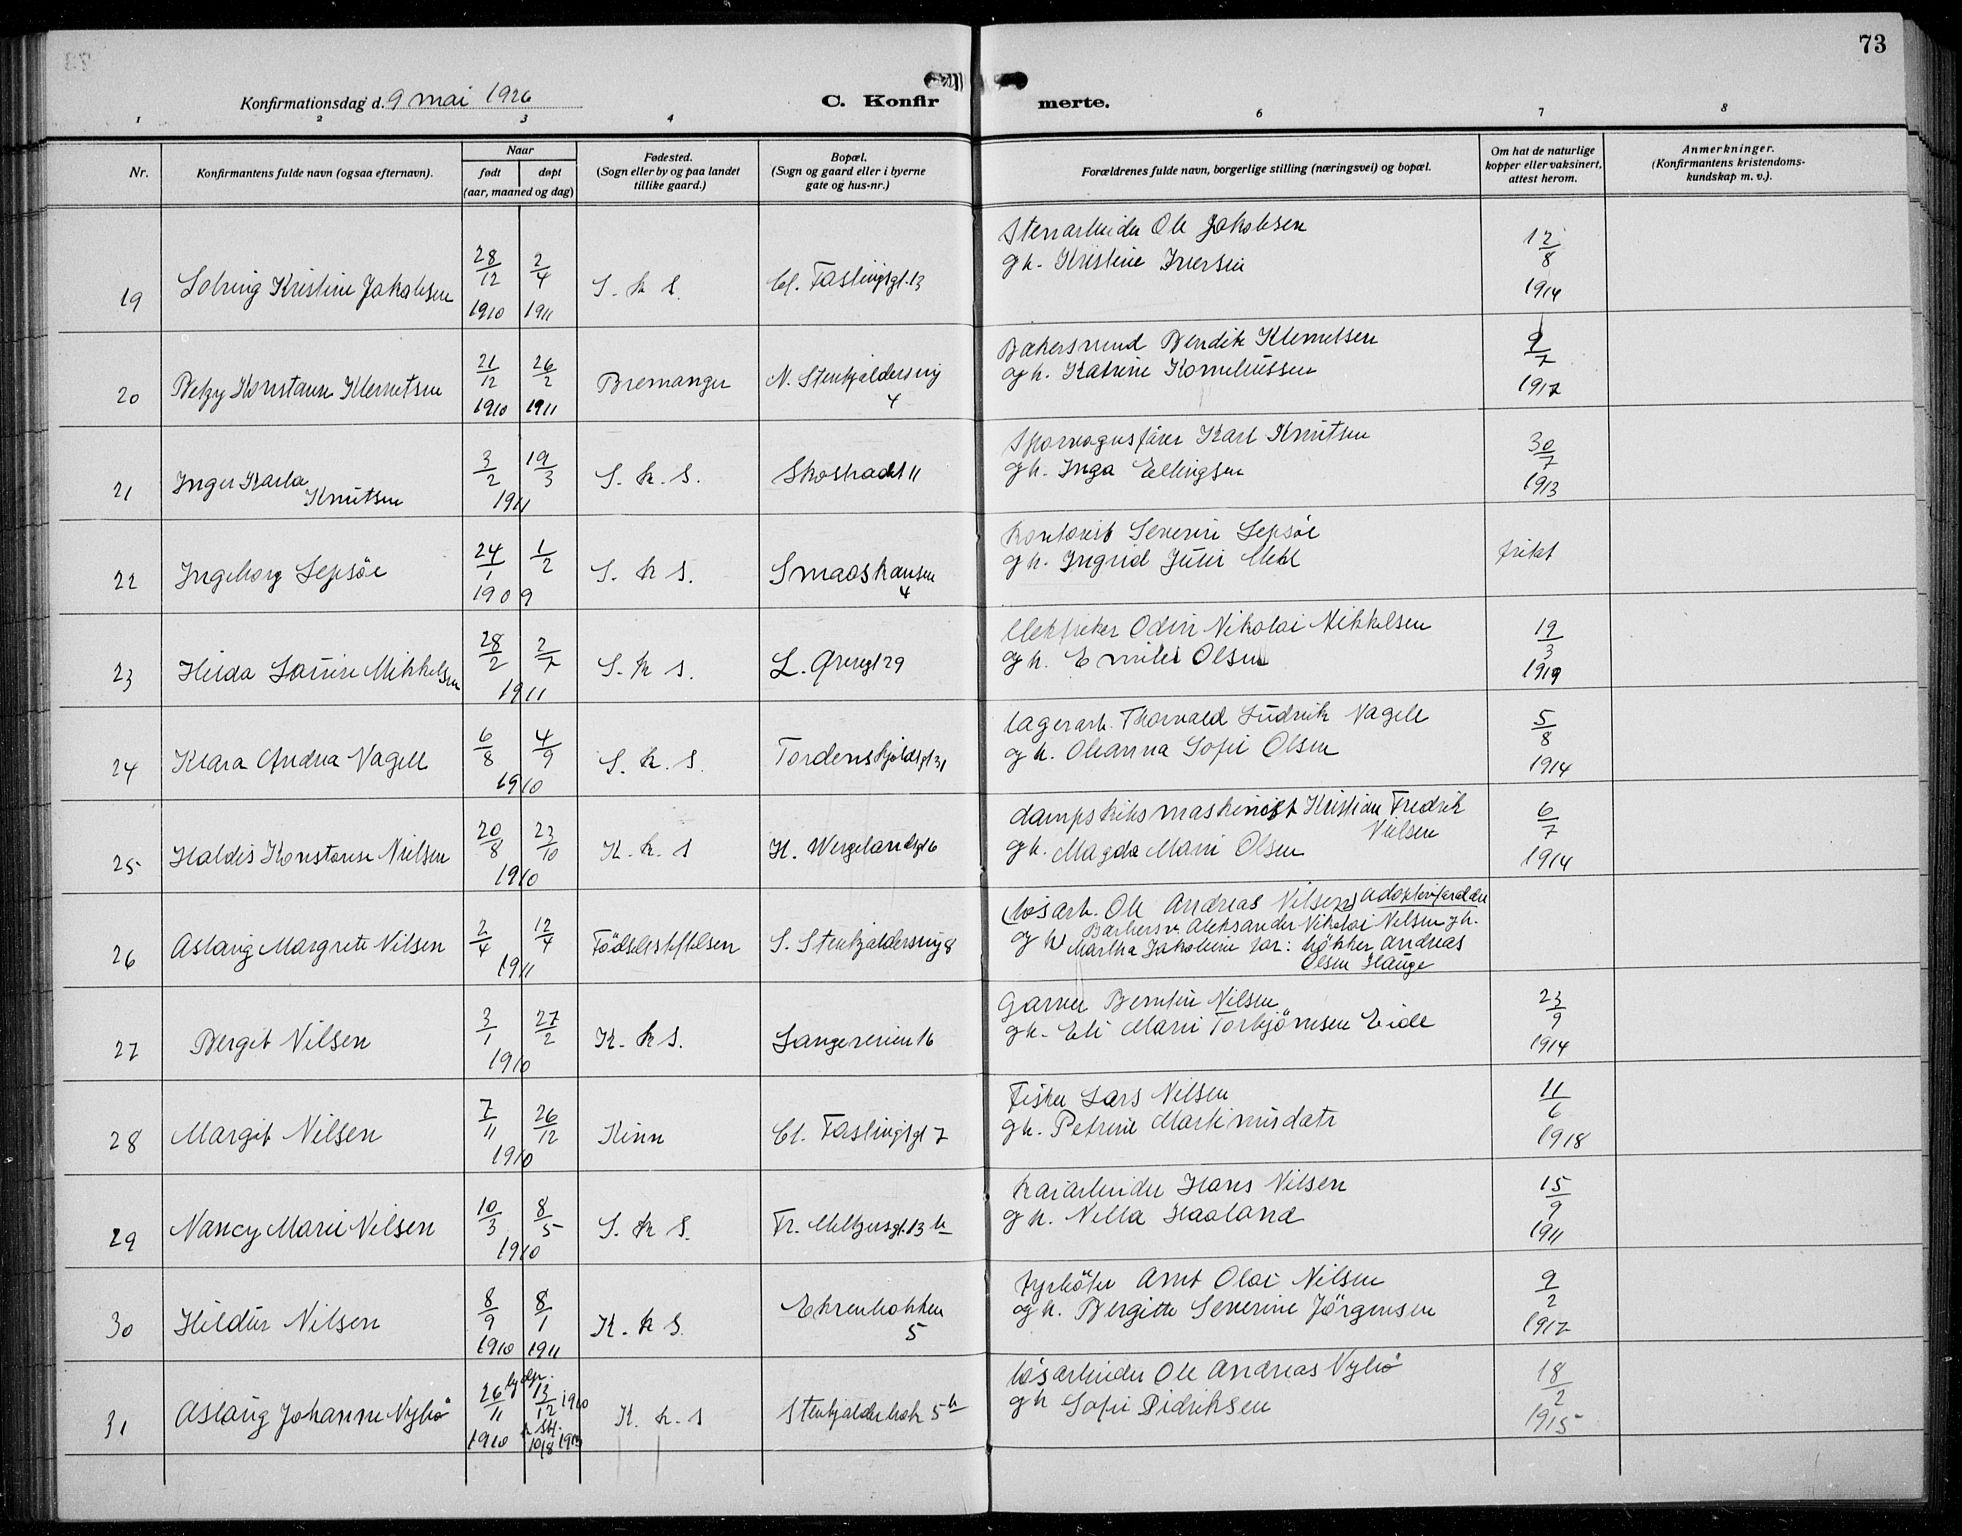 73
Konfirmationsdag d. 9 mai 1926
C. Konfirmerte.
1 2 3 4 6 7 8
Nr.
Konfirmantens fulde navn (ogsaa efternavn).
Naar
født døpt
(aar, maaned og dag)
Fødested.
(Sogn eller by og paa landet
tillike gaard.)
Bopæl.
(Sogn og gaard eller i byerne
gate og hus-nr.)
Forældrenes fulde navn, borgerlige stilling (næringsvei) og bopæl.
Om hat de naturlige
kopper eller vaksinert,
attest herom.
Anmerkninger.
(Konfirmantens kristendoms-
kundskap m. v.).
19 Solveig Kristine Jakobsen 28/12 1910 2/4 1911 S. k. S. Cl. Fastingsgt. 13
Stenarbeider Ole Jakobsen
og h. Kristine Iversen
12/8 1914
20 Konstanse Klemetsen 21/12 1910 26/2 1911 Bremanger N. Stenkjeldersvig 4
Bakersvend Bendik Klemetsen
og h. Katrine Korneliussen
9/7 1917
21 Inger Karla
Knutsen 3/2 19/3 1911 S. k. S. Skostrædet 11
Sporvognsfører Karl Knutsen
og h. Inga Ellingsen
30/7 1913
22 Ingeborg Sepsöe 24/1 1/2 1909 S. k. S. Smaoskansen 4
Kontorist Severin Sepsöe
og h. Ingrid Julie
frikt
23 Hilda Lovise Mikkelsen 28/2 2/7 1911 S. k. S. L. Øvregt 29
Odin Nikolai Mikkelsen
og h. Emilie Olsen
19/3 1919
24 Klara Andrea Nagell 6/8 4/9 1910 S. k. S. Tordenskjoldsgt 31
lagerarb. Thorvald Ludvik Nagell
og h. Oleanna Sofie Olsen
5/8 1914
25 Haldis Konstanse Nielsen 20/8 23/10 1910 K. k. S H. Wergelandsgt 6
dampskibsmaskinist Kristian Fredrik
Nielsen
og h. Magda Marie Olsen
6/7 1914
26 Aslaug Margrete Nilsen 2/4 12/4 1911 Födselsstiftelsen S. Stenkjeldersvig 8
(løsarb. Ole Andreas Nilsen) adoptivforældre
og h) Barbersv. Aleksander Nikolai Nilsen og h.
Martha Jakobine
Andreas
Olsen Hauge
27 Berget Nilsen 3/1 27/2 1910 K. k S. Langereien 16
Garver Berntin Nilsen
og h. Eli Marie Torbjörnsen Eide
23/9 1914
28 Margit Nilsen 7/11 26/12 1910 Kinn Cl. Fastingsgt 7
Fisker Lars Nilsen
og h. Petrine Martinusdatr
11/6 1918
29 Nancy Marie Nilsen 10/3 8/5 1910 S. k S. Fr. Meltzersgt. 13 b
kaiarbeider Hans Nilsen
og h. Nilla Haaland
15/9 1911
30 Hildur Nilsen 8/9 1910 8/1 1911 K. k S. Ekrenbakken
5
fyrböter Arnt Olai Nilsen
og h. Bergitte Severine Jörgensen
9/2 1917
31 Aslaug Johanne Nybö 26/11 1910 13/12 1910 K. k. S Stenkjelderbak 5 b
løsarbeider Ole Andreas Nybö
og h Sofie Didriksen
18/2 1915